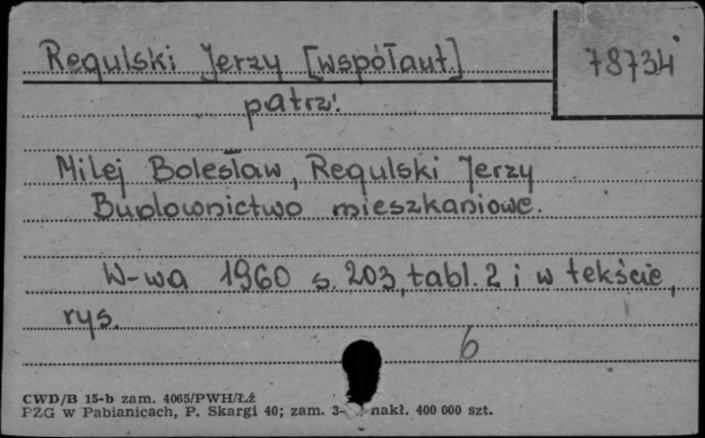 Regulski Jerzy [współaut]
78734
patrz:
Milej Bolesław, Regulski Jerzy
Budownictwo mieszkaniowe.
W-wa 1960 s. 203, tabl. 2 i w tekście,
rys.
6
CWD/B 15-b zam. 4065/PWH/Łź
PZG w Pabianicach, P. Skargi 40; zam. 3- nakł. 400 000 szt.